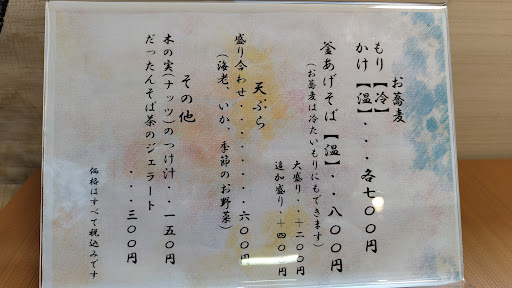 お蕎麦
もり【冷】
かけ【温】・・・・各七〇〇円
釜あげそば【温】・・八〇〇円
(お蕎麦は冷たいもりにもできます)
大盛り・・+二〇〇円
追加盛り・・+四〇〇円
天ぷら
盛り合わせ・・・・・・・・六〇〇円
(海老、いか、季節のお野菜)
その他
木の実(ナッツ)のつけ汁・・一五〇円
だったんそば茶のジェラート
・・・三〇〇円
価格はすべて税込みです